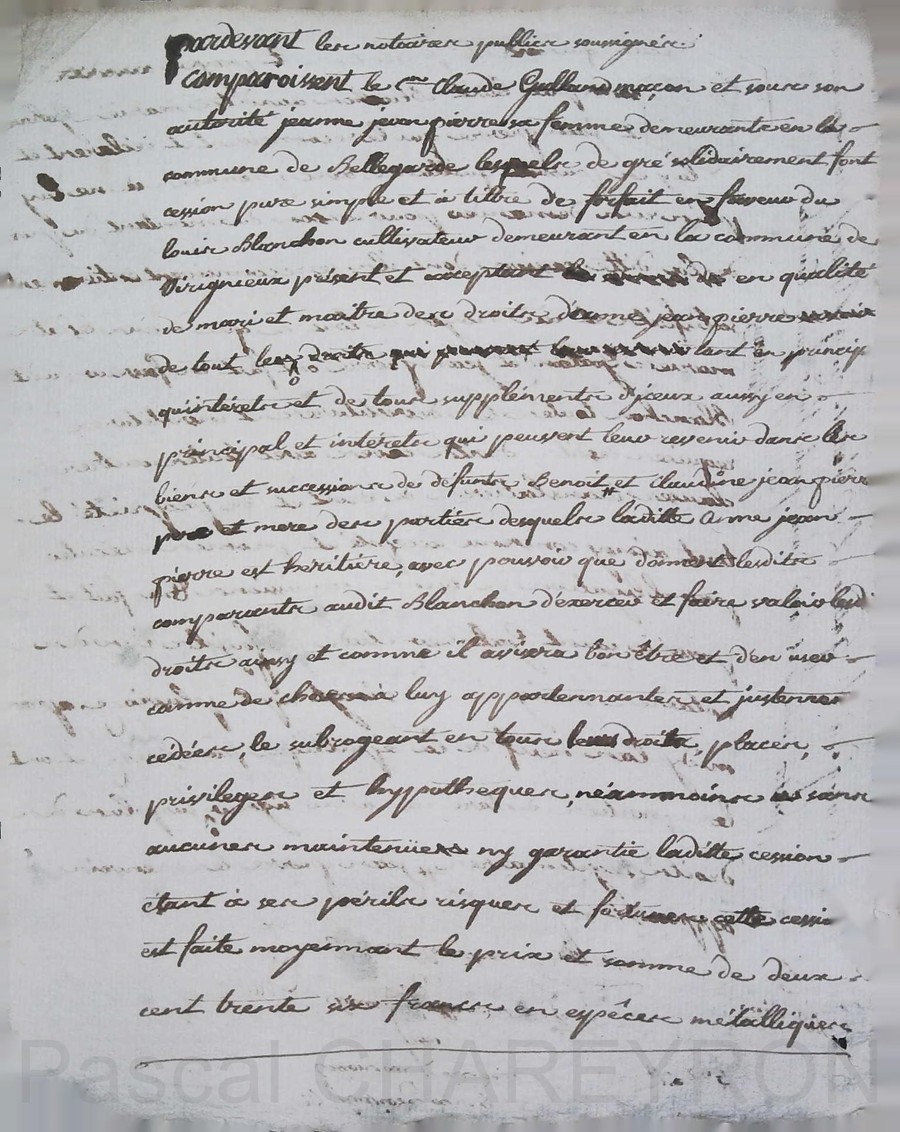 pardevant les notaires publics soussignés
comparoissent le Cen Claude Gulland maçon et sous son
autorité jeanne jean pierre sa femme demeurants en la
commune de Bellegarde lesquels de gré solidairement font
cession pure simple et à titre de forfait en faveur du
louis Blanchon cultivateur demeurant en la commune de
Virignieux présent et acceptant en qualité
de mari et maitre des droits d'anne jean pierre
de tout les droits tant en princip
qu'intérets et de tous suppléments d'iceux aussy en
principal et intérets qui peuvent leur revenir dans les
biens et successions de défunts Benoit et Claudine jean pierre
pere et mere des parties desquels laditte anne jean
pierre est héritière, avec pouvoir que donnent lesdits
comparants audit Blanchon d'éxercer et faire valoir lesd
droits ainsy et comme il avisera bon être et d'en user
comme de choses à luy appartennantes et justement
cédées, le subrogeant en tous leurs droits, places,
privileges et hypotheques, néammoins sans
aucunes maintenües ny garantie laditte cession
étant à ses périls risques et fortunes cette cessio
est faite moyennant le prix et somme de deux
cent trente six francs en espêces métalliques
Pascal CHAREYRON